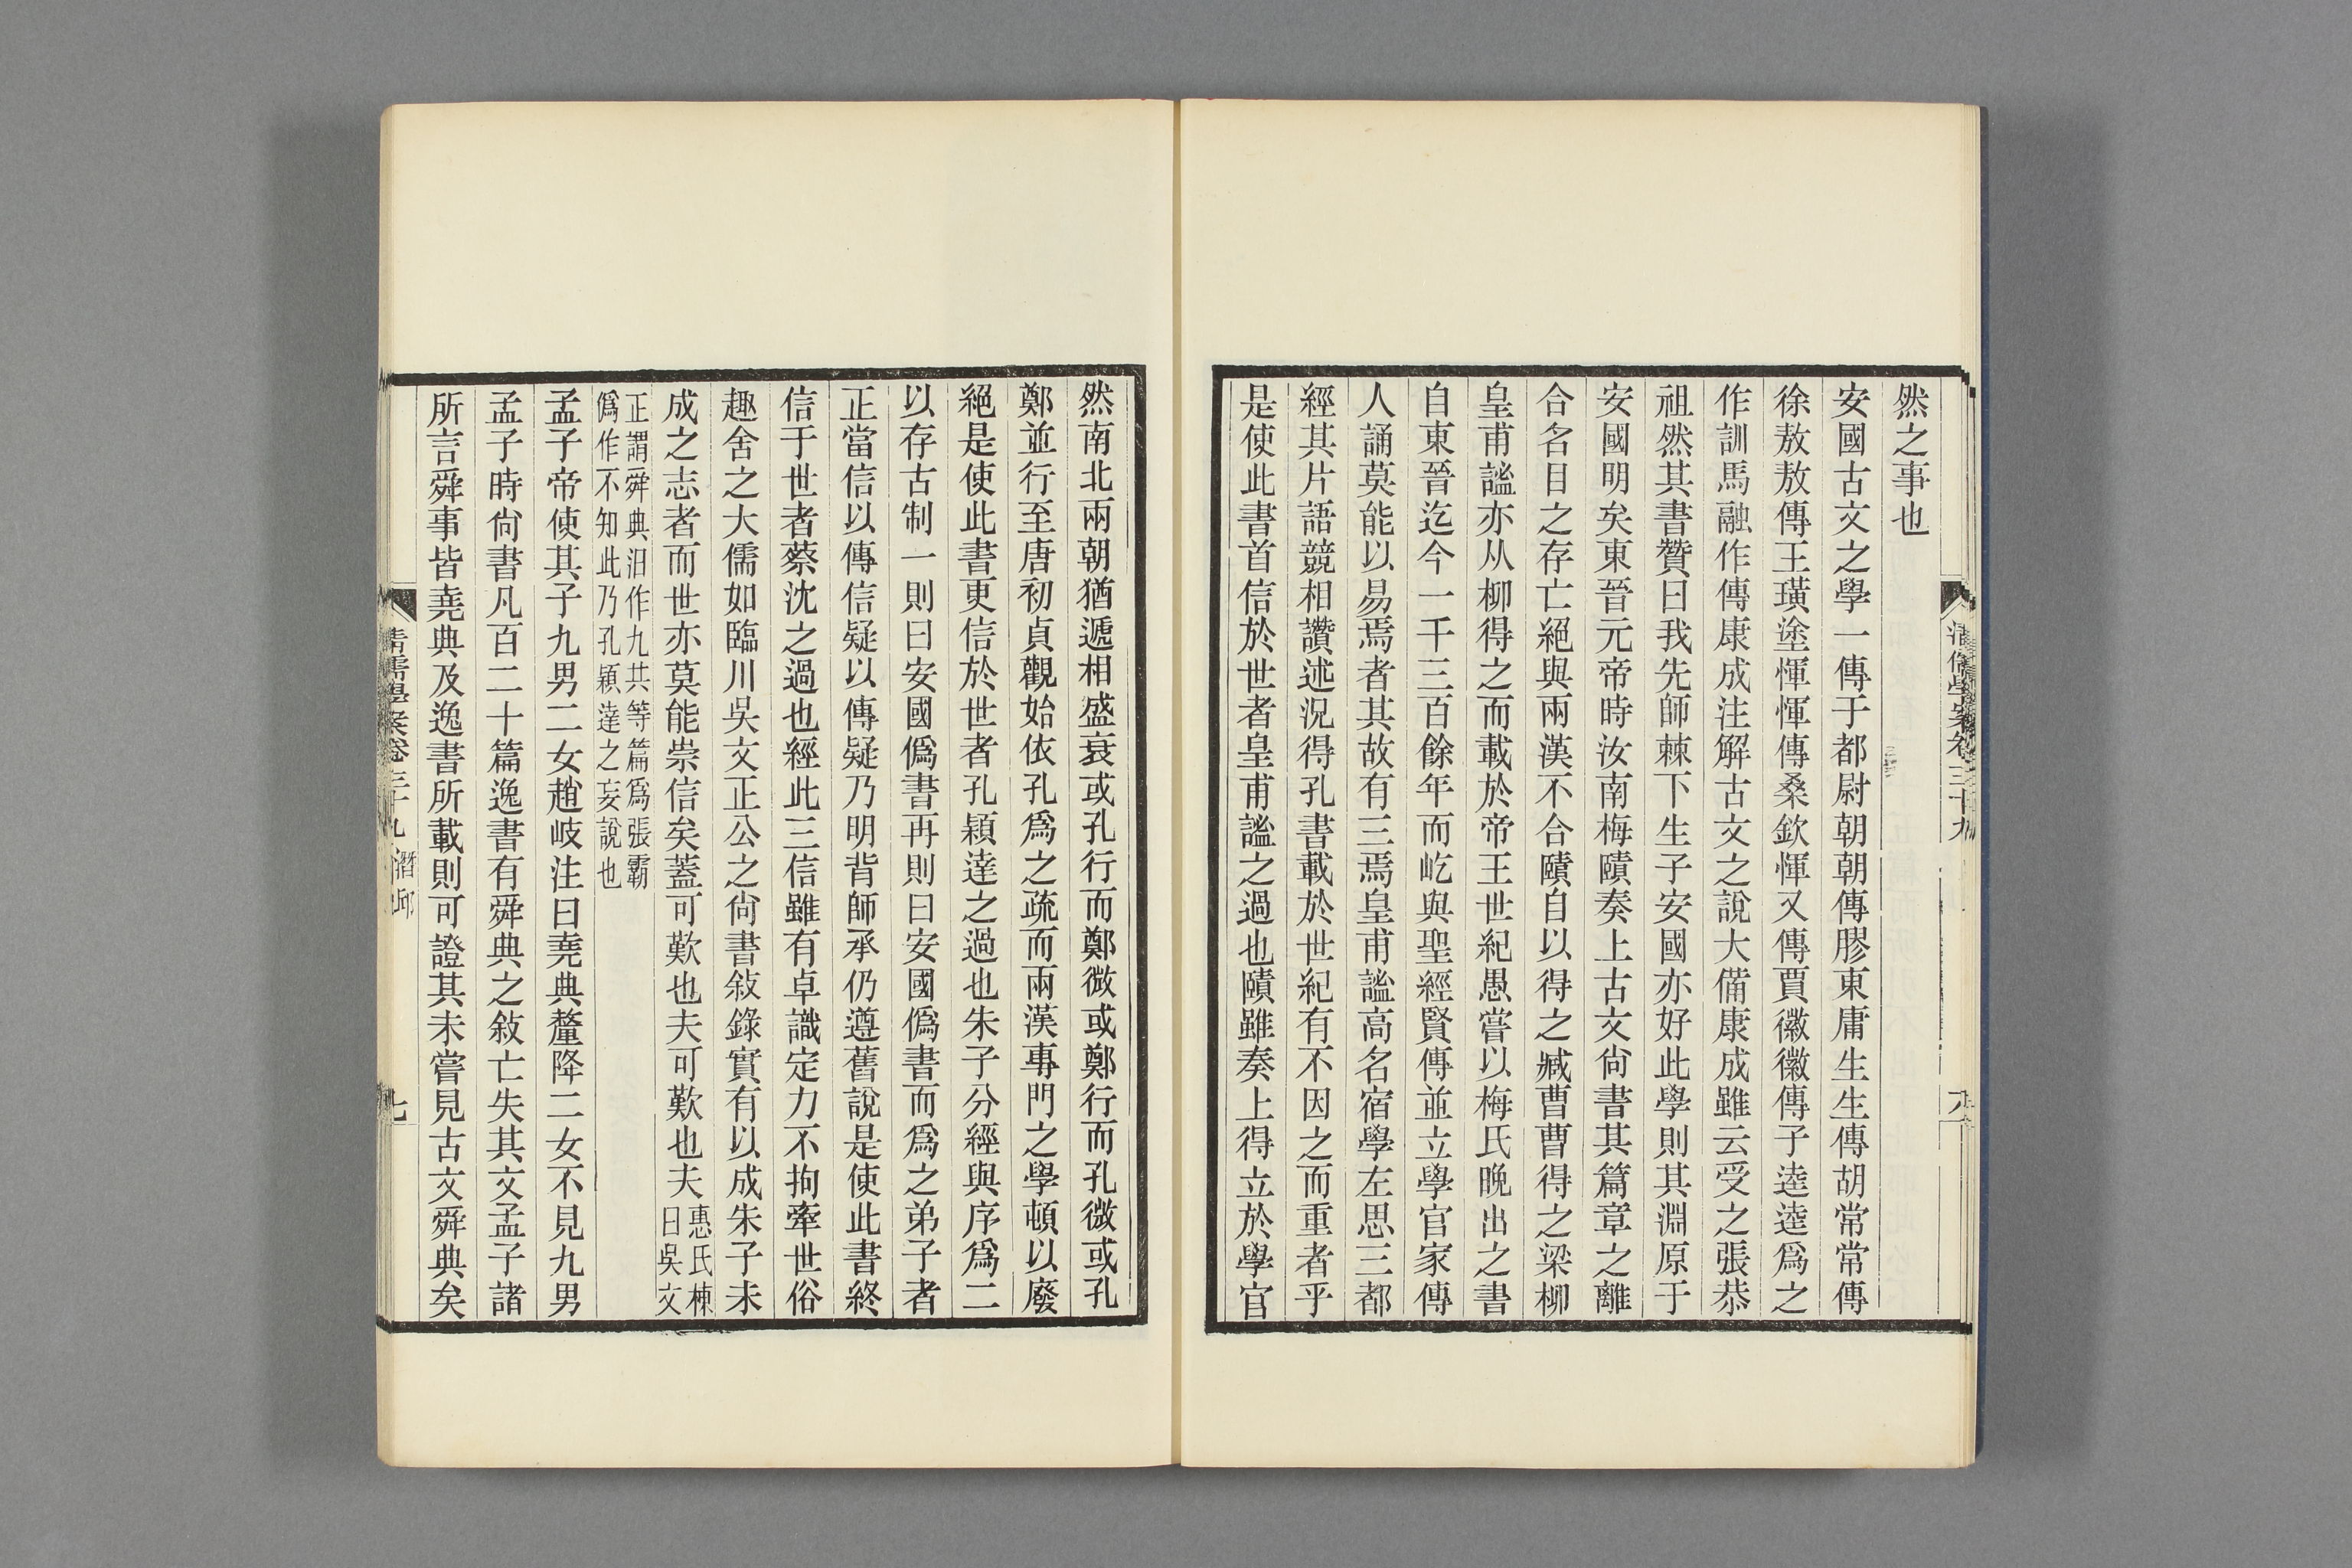 然之事也
安國古文之學一傳于都尉朝朝傳膠東庸生生傳胡常常傳
徐敖敖傳王璜塗惲惲傳桑欽惲又傳賈徽徽傳子逵逵爲之
作訓馬融作傳康成注解古文之說大備康成雖云受之張恭
祖然其書贊曰我先師棘下生子安國亦好此學則其淵原于
安國明矣東晉元帝時汝南梅賾奏上古文尙書其篇章之離
合名目之存亡絕與兩漢不合賾自以得之臧曹曹得之梁柳
皇甫謐亦从柳得之而載於帝王世紀愚嘗以梅氏晚出之書
自東晉迄今一千三百餘年而屹與聖經賢傳並立學官家傳
人誦莫能以易焉者其故有三焉皇甫謐高名宿學左思三都
經其片語競相讚述況得孔書載於世紀有不因之而重者乎
是使此書首信於世者皇甫謐之過也賾雖奏上得立於學官
然南北兩朝猶遞相盛衰或孔行而鄭微或鄭行而孔微或孔
鄭並行至唐初貞觀始依孔爲之疏而兩漢專門之學頓以廢
絕是使此書更信於世者孔穎達之過也朱子分經與序爲二
以存古制一則曰安國僞書再則曰安國僞書而爲之弟子者
正當信以傳信疑以傳疑乃明背師承仍遵舊說是使此書終
信于世者蔡沈之過也經此三信雖有卓識定力不拘牽世俗
趣舍之大儒如臨川吳文正公之尙書敍錄實有以成朱子未
成之志者而世亦莫能崇信矣蓋可歎也夫可歎也夫惠氏棟
曰吳文
正謂舜典汨作九共等篇爲張霸
僞作不知此乃孔穎達之妄說也
孟子帝使其子九男二女趙岐注曰堯典釐降二女不見九男
孟子時尙書凡百二十篇逸書有舜典之敍亡失其文孟子諸
所言舜事皆堯典及逸書所載則可證其未嘗見古文舜典矣
清儒學案卷三十九 潛邱 七